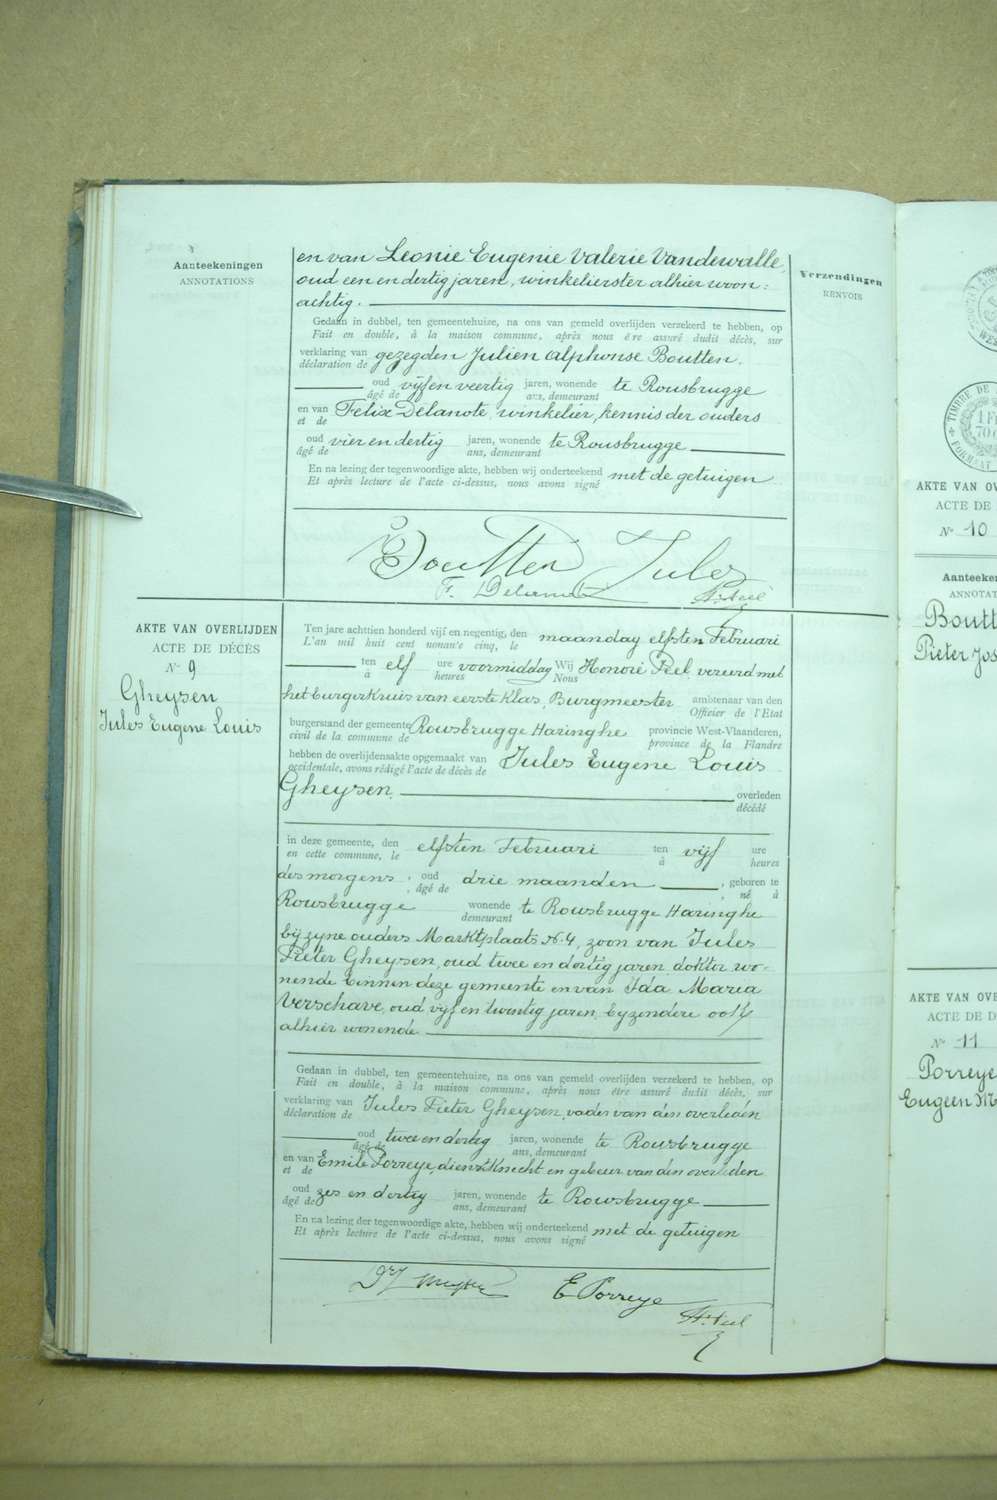 Aanteekeningen
ANNOTATIONS
Verzendingen
RENVOIS
en van Leonie Eugenie Valerie Vandewalle,
oud een en dertig jaren, winkelierster alhier woon=
achtig.
Gedaan in dubbel, ten gemeentehuize, na ons van gemeld overlijden verzekerd te hebben, op
Fait en double, à la maison commune, après nous être assuré dudit décès, sur
verklaring van gezegden Julien Alphonse Boutten.
déclaration de
oud vijf en veertig jaren, wonende te Rousbrugge
âgé de ans, demeurant
en van Felix Delanote, winkelier, kennis der ouders
et de
oud vier en dertig jaren, wonende te Rousbrugge
âgé de ans, demeurant
En na lezing der tegenwoordige akte, hebben wij onderteekend met de getuigen
Et après lecture de l'acte ci-dessus, nous avons signé
Boutten Jules
F. Delanote H. Peel
AKTE VAN OVERLIJDEN
ACTE DE DÉCÈS
N° 9
Gheysen
Jules Eugene Louis
Ten jare achttien honderd vijf en negentig, den maandag elfsten Februari
L'an mil huit cent nonante cinq, le
ten elf ure voormiddag Wij Honoré Peel vereerd met
à heures Nous
het burgerkruis van eerste klas, Burgmeester ambtenaar van den
Officier de l'Etat
burgerstand der gemeente Rousbrugge Haringhe provincie West-Vlaanderen,
civil de la commune de province de la Flandre
hebben de overlijdensakte opgemaakt van Jules Eugene Louis
occidentale, avons rédigé l'acte de décès de
Gheysen, overleden
décédé
in deze gemeente, den elfsten Februari ten vijf ure
en cette commune, le à heures
des morgens, oud drie maanden, geboren te
âgé de né à
Rousbrugge wonende te Rousbrugge Haringhe
demeurant
bij zyne ouders Marktplaats N. 4, zoon van Jules
Pieter Gheysen, oud twee en dertig jaren, doktor wo-
nende binnen deze gemeente en van Ida Maria
Verschave, oud vijf en twintig jaren, byzondere ook
alhier wonende
Gedaan in dubbel, ten gemeentehuize, na ons van gemeld overlijden verzekerd te hebben, op
Fait en double, à la maison commune, après nous être assuré dudit décès, sur
verklaring van Jules Pieter Gheysen, vader van den overleden
déclaration de
oud twee en dertig jaren, wonende te Rousbrugge
âgé de ans, demeurant
en van Emile Porreye, dienstknecht en gebuur van den overleden
et de
oud zes en dertig jaren, wonende te Rousbrugge
âgé de ans, demeurant
En na lezing der tegenwoordige akte, hebben wij onderteekend met de getuigen
Et après lecture de l'acte ci-dessus, nous avons signé
E Porreye
H. Peel
TIMBRE DE
1 F
70
FORMAT
AKTE VAN OV
ACTE DE
N° 10
Aanteeke
ANNOTAT
Boutt
Pieter Jos
AKTE VAN OVE
ACTE DE D
N° 11
Porreye
Eugeen